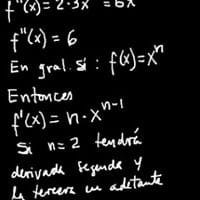 f''(x) = 2·3x = 6x
f''(x) = 6
En gral. si : f(x)=xⁿ
Entonces
f'(x) = n·xⁿ⁻¹
Si n=2 tendrá
derivada segunda y
la tercera en adelante